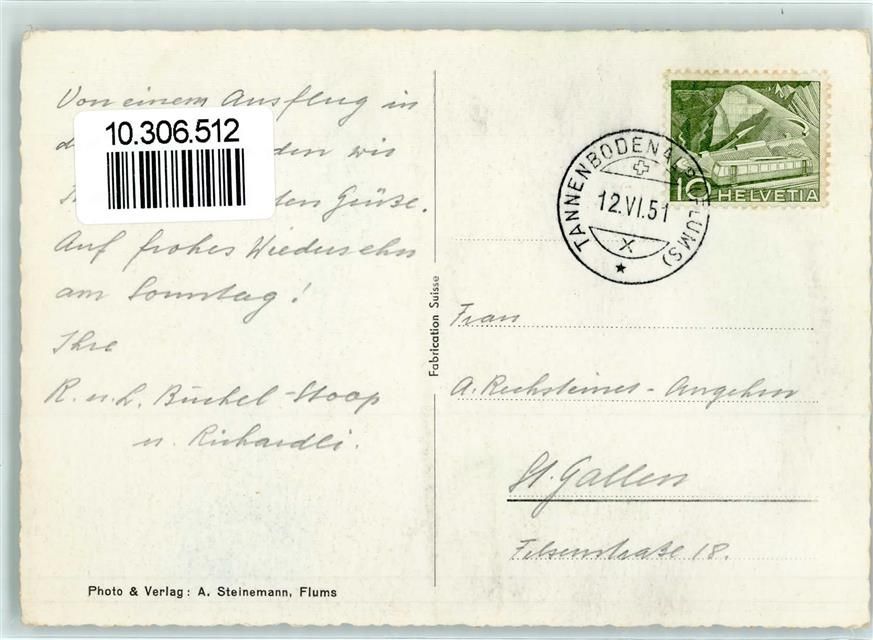 Von einem Ausflug in
10.306.512
d den wir
den Grüße.
Auf frohes Wiedersehn
am Sonntag!
Ihre
R. u. L. Büchel-Stoop
u. Richardli.
Photo & Verlag: A. Steinemann, Flums
Fabrication Suisse
10 HELVETIA
TANNENBODENALP (FLUMS)
12.VI.51
X
Frau
A. Rechsteiner-Angehrn
St. Gallen
Felsenstraße 18.